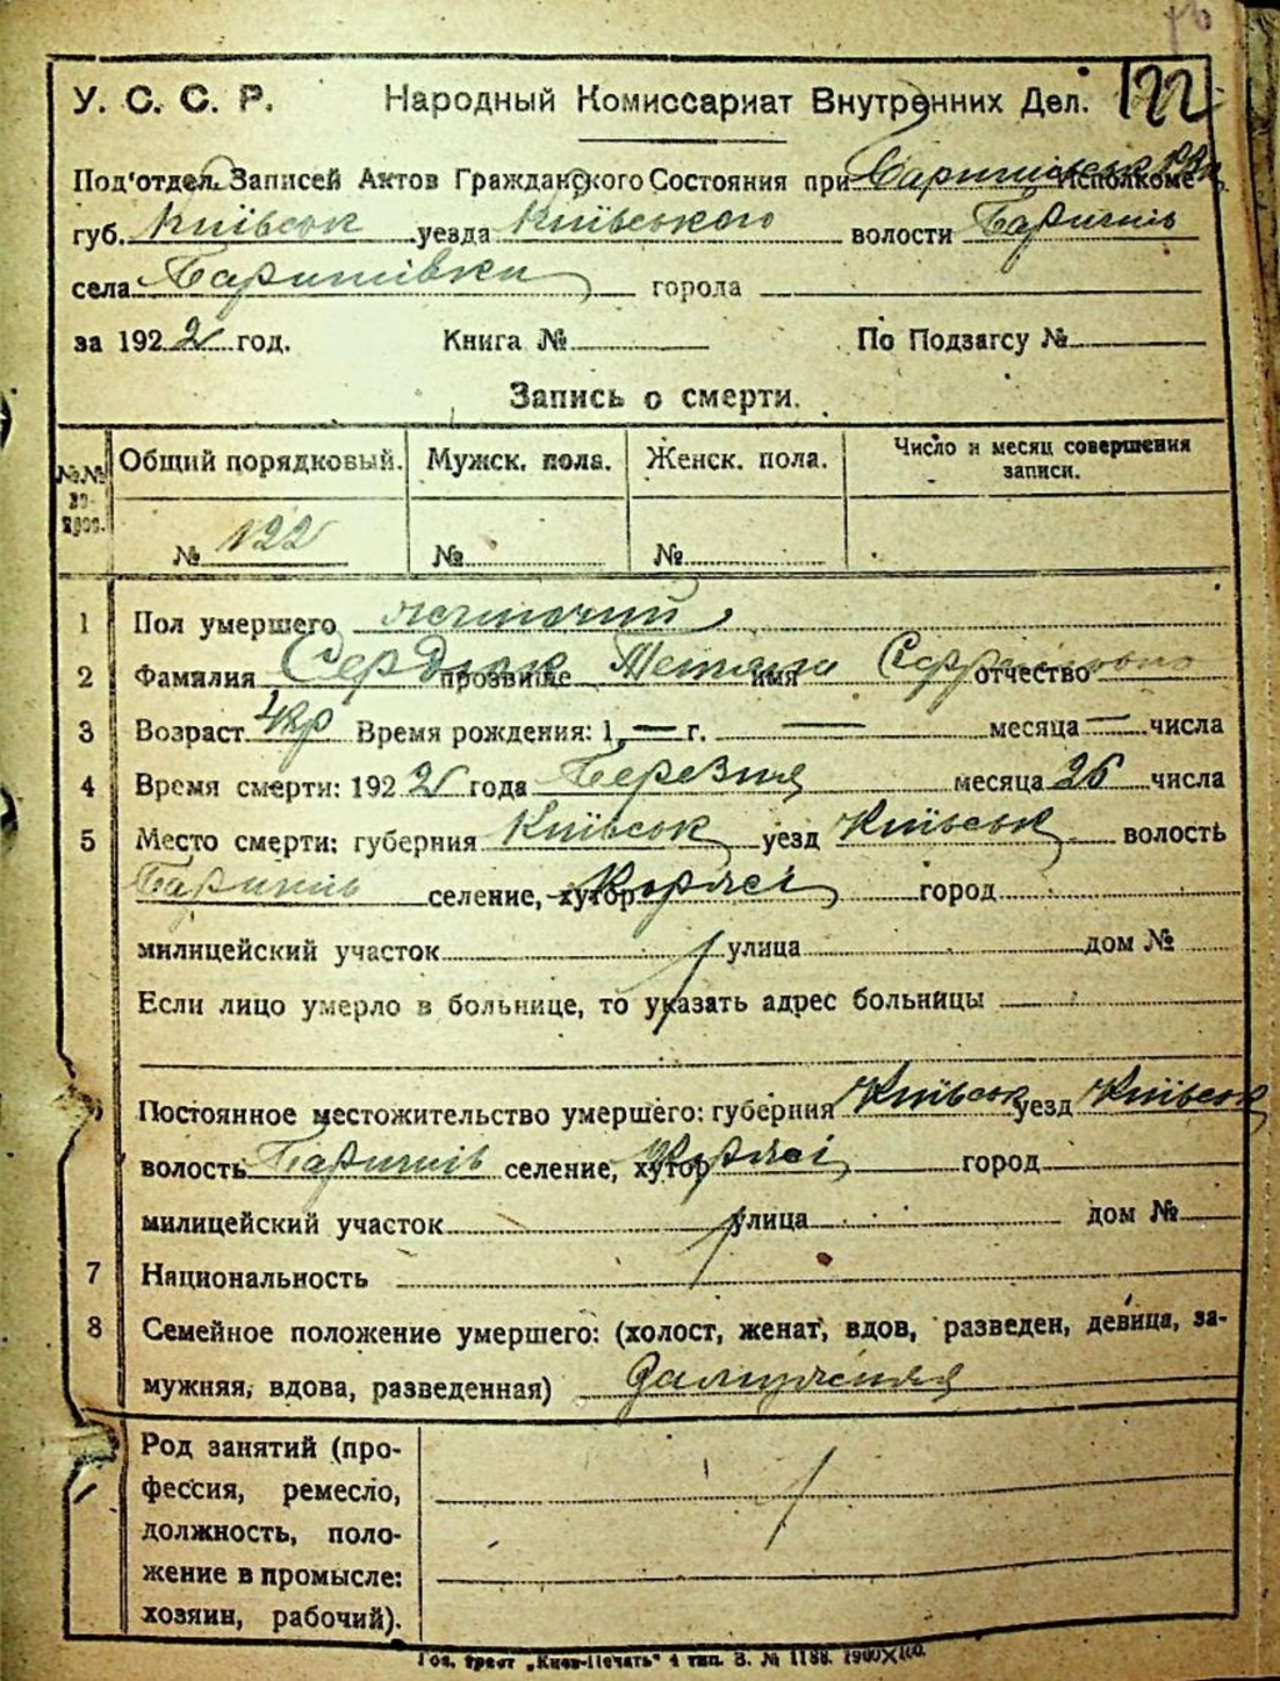 122
У. С. С. Р. Народный Комиссариат Внутренних Дел.
Под'отдел Записей Актов Гражданского Состояния при Исполкоме
губ. Київськ уезда Київського волости Баришів
села Баришівки города
за 1922 год. Книга № По Подзагсу №
Запись о смерти.
Общий порядковый. Мужск. пола. Женск. пола. Число и месяц совершения
записи.
№ 122 № №
1 Пол умершего жіночий
2 Фамилия Сердюк прозвище Тетяна имя отчество
3 Возраст Время рождения: 1 — г. — месяца — числа
4 Время смерти: 1922 года Березня месяца 26 числа
5 Место смерти: губерния Київськ уезд Київськ волость
Баришів селение, хутор Коржі город
милицейский участок улица дом №
Если лицо умерло в больнице, то указать адрес больницы
Постоянное местожительство умершего: губерния Київськ уезд Київськ
волость Баришів селение, хутор Коржі город
милицейский участок улица дом №
7 Национальность
8 Семейное положение умершего: (холост, женат, вдов, разведен, девица, за-
мужняя, вдова, разведенная) Замужняя
Род занятий (про-
фессия, ремесло,
должность, поло-
жение в промысле:
хозяин, рабочий).
Гос. трест „Киев-Печать" 4 тип. З. № 1188. 1900×100.